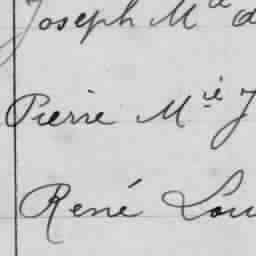 Joseph M^ie d
Pierre M^ie J
René Lou